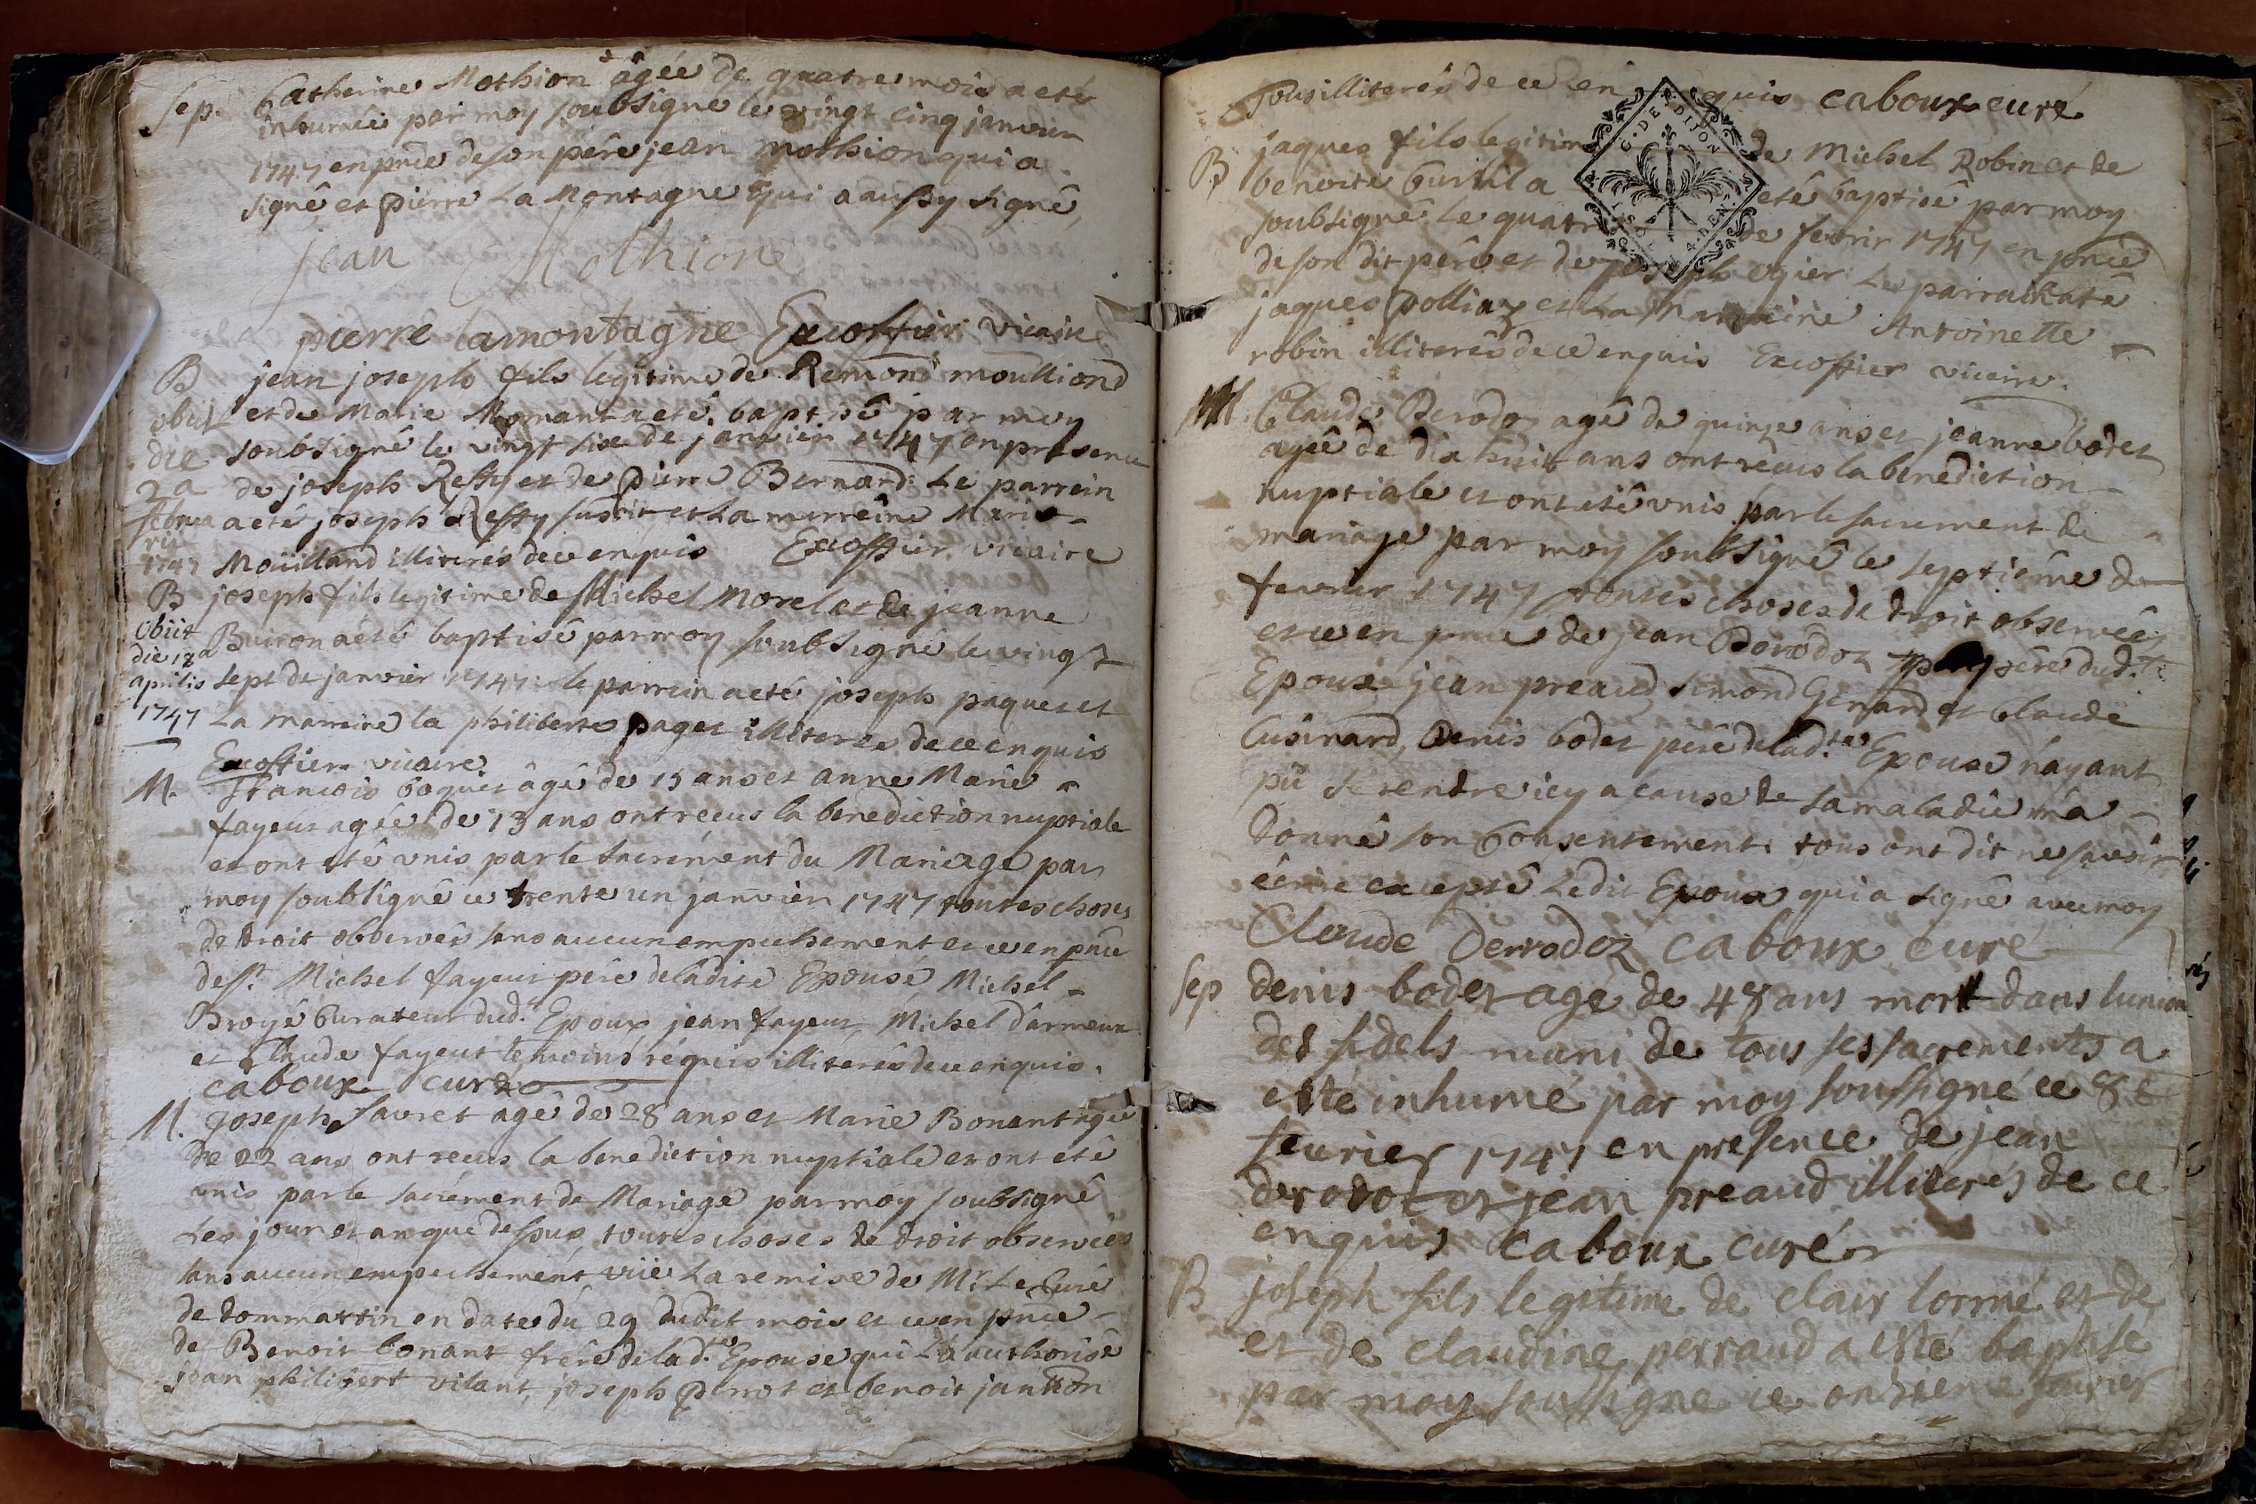 Sep. Catherine Mothion âgée de quatre mois a eté
inhumée par moy soubsigné le vingt cinq janvier
1747 en pnce de son pére jean mothion qui a
signé et pierre La Montagne qui a aussy signé
jean Mothion
pierre lamontagne Excoffier vicaire
B jean joseph fils legitime de Remond moulliond
obiit et de Marie Romant a eté baptisé par moy
die soubsigné le vingt six de janvier 1747 en presence
2a de joseph Ressy et de pierre Bernard. Le parrein
februa a eté joseph Ressy susdit et La marreine Marie
rii
1747 Moüilland illiterés de ce enquis Excoffier vicaire
B joseph fils legitime de Michel Morel et de jeanne
obiit Buiron a eté baptisé par moy soubsigné le vingt
die 18a
aprilis sept de janvier 1747: le parrein a eté joseph paquet et
1747 La marreine la philiberte paget illiterés de ce enquis
Excoffier vicaire
M. francois baquet âgé de 15 ans et anne Marie
fayeur agée de 13 ans ont recus la benediction nuptiale
et ont eté vnis par le sacrément du Mariage par
moy soubsigné ce trente un janvier 1747 toutes choses
de droit observés sans aucun empechement et ce en pnce
de sr. Michel fayeur pére de ladite Epouse Michel
Broyé Curateur dud. Epoux jean fayeur, Michel Dârmeux
et Claude fayeur témoins réquis illiterés de ce enquis.
caboux curé
M. joseph favret agé de 28 ans et Marie Bonant agée
de 22 ans ont recus la benediction nuptiale et ont eté
vnis par le sacrément de Mariage par moy soubsigné
Les jour et an que dessus toutes choses de droit observées
sans aucun empechement, vüe La remise de Mr. Le Curé
de dommartin en date du 29 dudit mois et ce en pnce
de Benoit bonant frére de lad.te Epouse qui L'a authorisé
jean philibert vilant, joseph perrot et benoit janthon
Tous illiterés de ce enquis caboux curé
B jaques fils legitime de Michel Robin et de
benoite a eté baptisé par moy
soubsigné Le quatre de fevrir 1747 en pnce
de son dit pére et de joseph ogier Le parrain a eté
jaques polliaz et La Marraine Antoinette
robin illiterés de ce enquis Excoffier vicaire.
M. Claude Derodoz agé de quinze ans et jeanne bodet
agée de dix huit ans ont récus la benediction
nuptiale et ont eté vnis par le sacrement de
mariage par moy soubsigné le septiéme de
fevrier 1747 toutes choses de droit observées
et ce en pnce de jean Dérodoz pére dud.t
Epoux jean preaud simond Genard et Claude
Cusinard, Denis bodet pére de lad.te Epouse n'ayant
pû se rendre icy a cause de sa maladie m'a
donné son Consentement. tous ont dit ne savoir
écrire excepté Ledit Epoux qui a signé avec moy
Claude Derrodoz caboux curé
Sep denis bodet agé de 48 ans mort dans lunion
des fidels muni de tous ses sacrements a
esté inhumé par moy soussigné ce 8e
feurier 1747 en presence de jean
derodoz et jean preaud illiterés de ce
enquis caboux curé
B joseph fils legitime de clair lormé et de
et de claudine perraud a esté baptisé
par moy soussigné ce onzieme feurier
G. DE DIJON